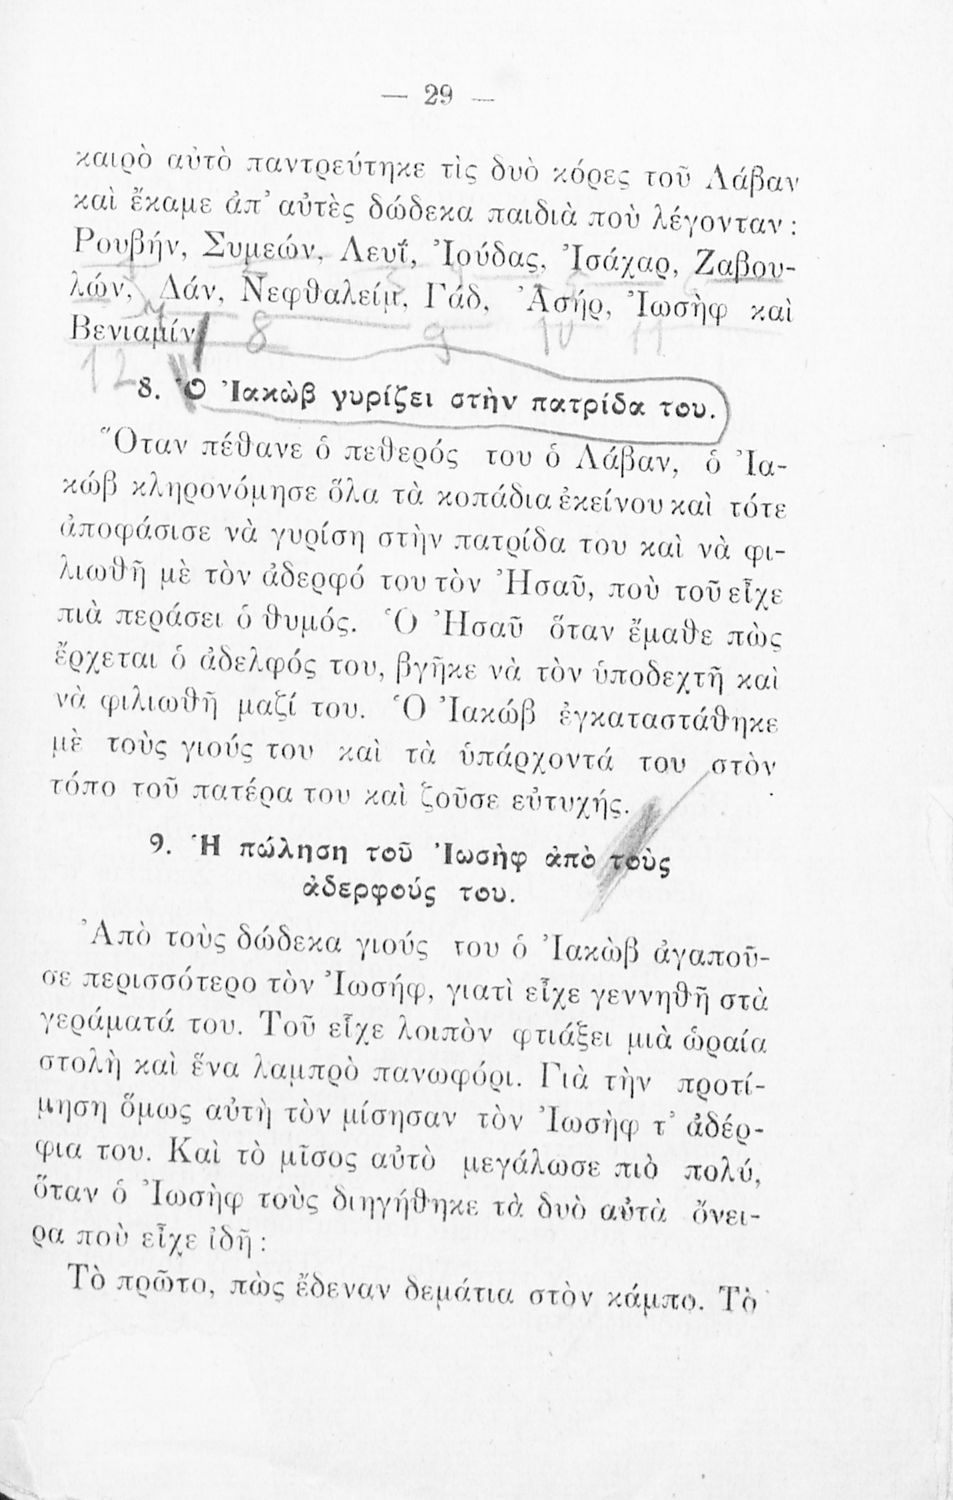 — 29 —
καιρὸ αὐτὸ παντρεύτηκε τὶς δυὸ κόρες τοῦ Λάβαν
καὶ ἔκαμε ἀπ' αὐτὲς δώδεκα παιδιὰ ποὺ λέγονταν :
Ρουβήν, Συμεών, Λευΐ, Ἰούδας, Ἰσάχαρ, Ζαβου-
λών, Δάν, Νεφθαλείμ, Γάδ, Ἀσήρ, Ἰωσὴφ καὶ
Βενιαμίν
8 9 10 11
12
8. Ὁ Ἰακὼβ γυρίζει στὴν πατρίδα του.
Ὅταν πέθανε ὁ πεθερός του ὁ Λάβαν, ὁ Ἰα-
κώβ κληρονόμησε ὅλα τὰ κοπάδια ἐκείνου καὶ τότε
ἀποφάσισε νὰ γυρίση στὴν πατρίδα του καὶ νὰ φι-
λιωθῆ μὲ τὸν ἀδερφό του τὸν Ἠσαῦ, ποὺ τοῦ εἶχε
πιὰ περάσει ὁ θυμός. Ὁ Ἠσαῦ ὅταν ἔμαθε πὼς
ἔρχεται ὁ ἀδελφός του, βγῆκε νὰ τὸν ὑποδεχτῆ καὶ
νὰ φιλιωθῆ μαζί του. Ὁ Ἰακώβ ἐγκαταστάθηκε
μὲ τοὺς γιούς του καὶ τὰ ὑπάρχοντά του στὸν
τόπο τοῦ πατέρα του καὶ ζοῦσε εὐτυχής.
9. Ἡ πώληση τοῦ Ἰωσὴφ ἀπὸ τοὺς
ἀδερφούς του.
Ἀπὸ τοὺς δώδεκα γιούς του ὁ Ἰακὼβ ἀγαποῦ-
σε περισσότερο τὸν Ἰωσήφ, γιατὶ εἶχε γεννηθῆ στὰ
γεράματά του. Τοῦ εἶχε λοιπὸν φτιάξει μιὰ ὡραία
στολὴ καὶ ἕνα λαμπρὸ πανωφόρι. Γιὰ τὴν προτί-
μηση ὅμως αὐτὴ τὸν μίσησαν τὸν Ἰωσὴφ τ' ἀδέρ-
φια του. Καὶ τὸ μῖσος αὐτὸ μεγάλωσε πιὸ πολύ,
ὅταν ὁ Ἰωσὴφ τοὺς διηγήθηκε τὰ δυὸ αὐτὰ ὄνει-
ρα ποὺ εἶχε ἰδῆ :
Τὸ πρῶτο, πὼς ἔδεναν δεμάτια στὸν κάμπο. Τὸ